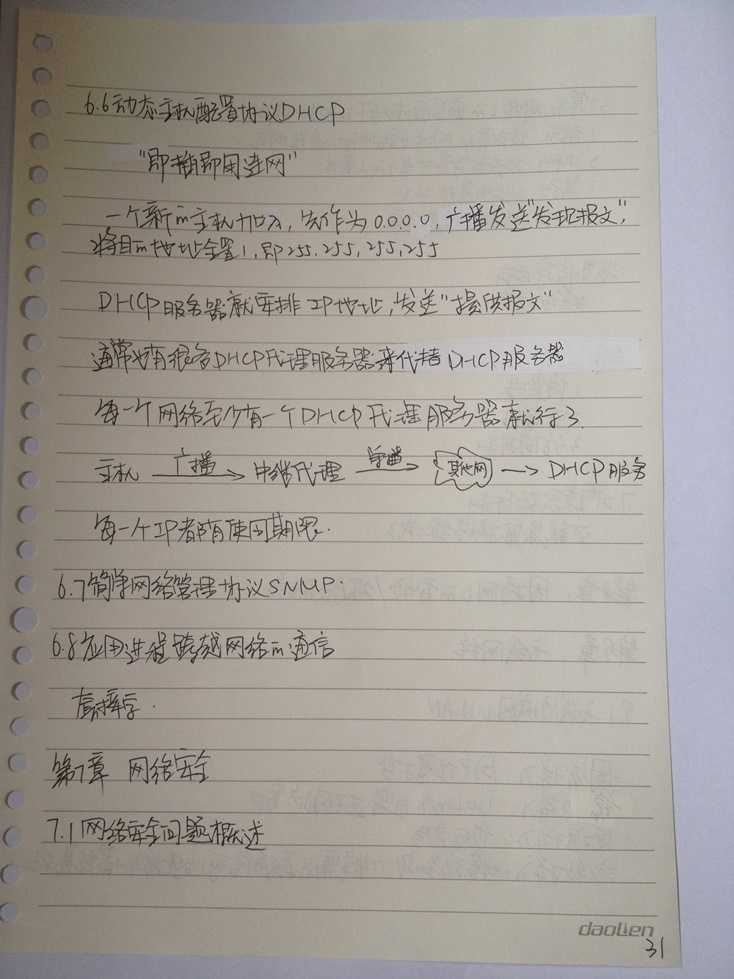 6.6动态主机配置协议DHCP
"即插即用连网"
一个新的主机加入，先作为0.0.0.0，广播发送"发现报文"，
将目的地址全置1，即255.255,255,255
DHCP服务器就安排IP地址，发送"提供报文"
通常也有很多DHCP代理服务器来代替DHCP服务器
每一个网络至少有一个DHCP代理服务器就行了.
主机 广播→ 中继代理 单播→ 其他网 → DHCP服务
每一个IP都有使用期限.
6.7简单网络管理协议SNMP.
6.8应用进程跨越网络的通信
套接字.
第7章 网络安全
7.1网络安全问题概述
daolien
31